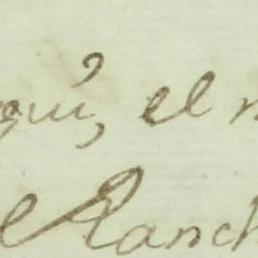 qui, el
el Ranch